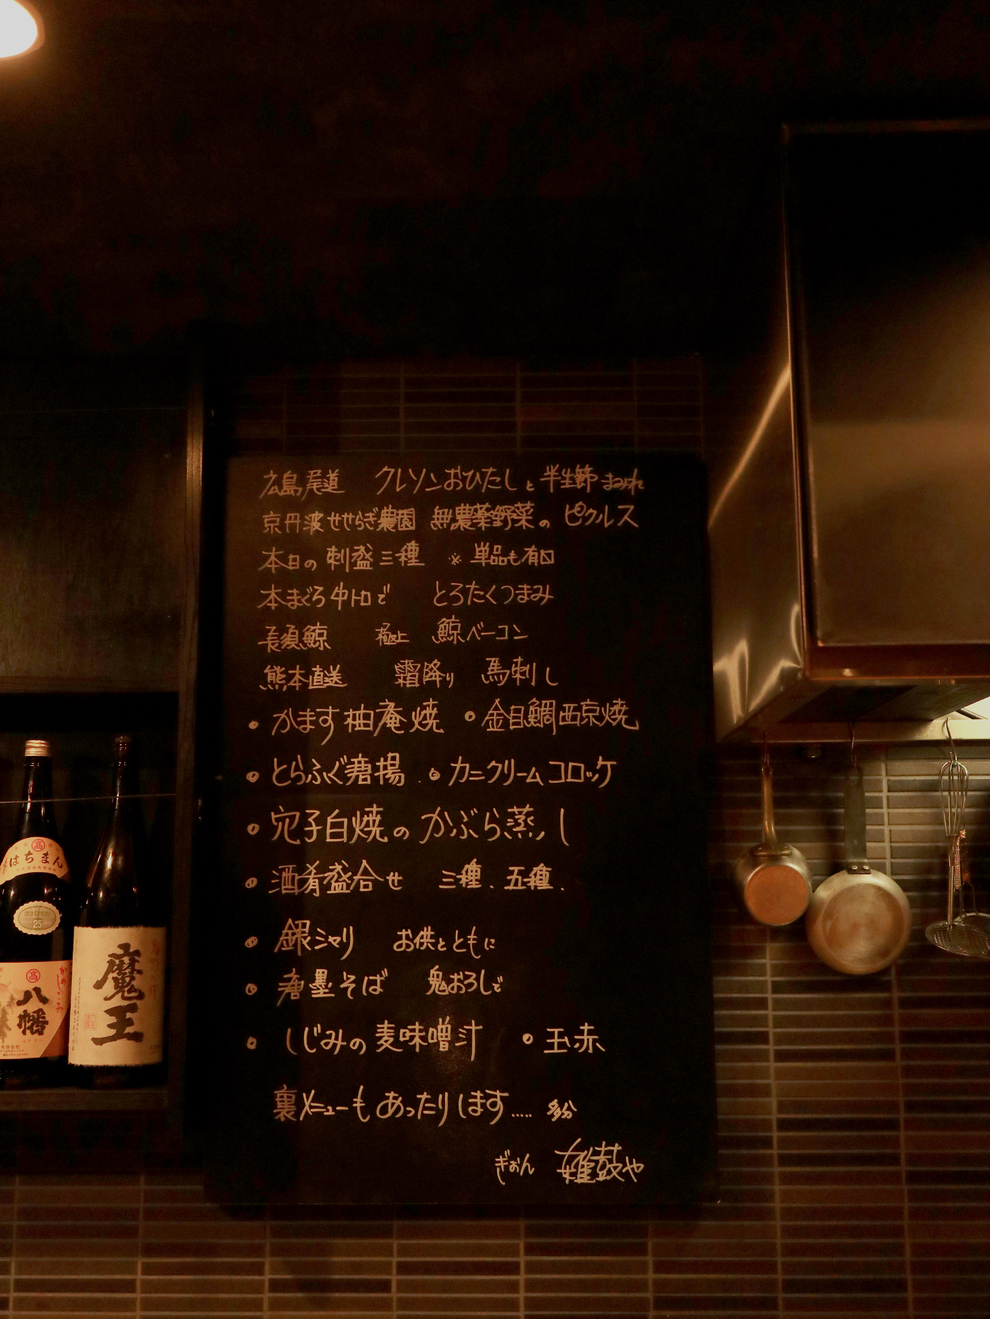 広島尾道 クレソンおひたしと半生節まみれ
京丹波せせらぎ農園 無農薬野菜のピクルス
本日の刺盛三種 ※単品も有口
本まぐろ中トロで とろたくつまみ
長須鯨 極上 鯨ベーコン
熊本直送 霜降り 馬刺し
・かます柚庵焼 ・金目鯛西京焼
・とらふぐ唐揚 ・カニクリームコロッケ
・穴子白焼のかぶら蒸し
・酒肴盛合せ 三種、五種、
・銀シャリ お供とともに
・唐墨そば 鬼おろしで
・しじみの麦味噌汁 ・玉、赤、
裏メニューもあったりします..... 多分
ぎおん 雑鼓や
はちまん
25
八幡
魔王